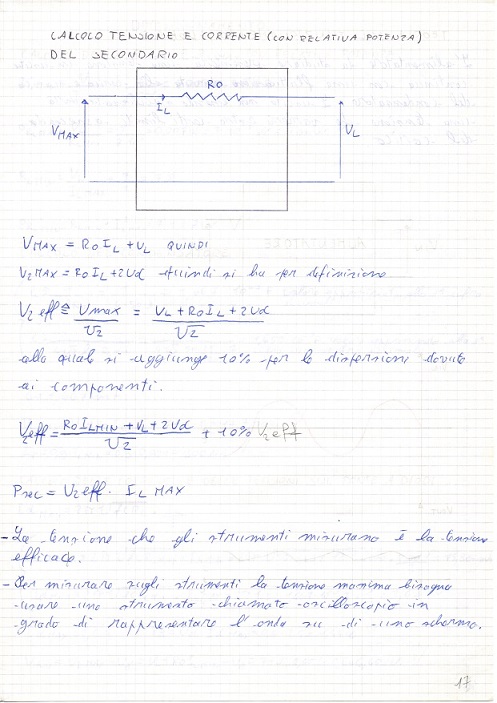 CALCOLO TENSIONE E CORRENTE (CON RELATIVA POTENZA)
DEL SECONDARIO
RO
IL
VMAX
VL
VMAX = RO IL + VL QUINDI
V2MAX = RO IL + 2Vd quindi si ha per definizione
V2 eff ≙ Vmax / √2 = VL + RO IL + 2Vd / √2
alla quale si aggiunge 10% per la dispersione dovuta
ai componenti.
V2eff = RO ILMIN + VL + 2Vd / √2 + 10% V2eff
Psec = V2eff · IL MAX
- La tensione che gli strumenti misurano è la tensione
efficace.
- Per misurare sugli strumenti la tensione massima bisogna
usare uno strumento chiamato oscilloscopio in
grado di rappresentare l'onda su di uno schermo.
17